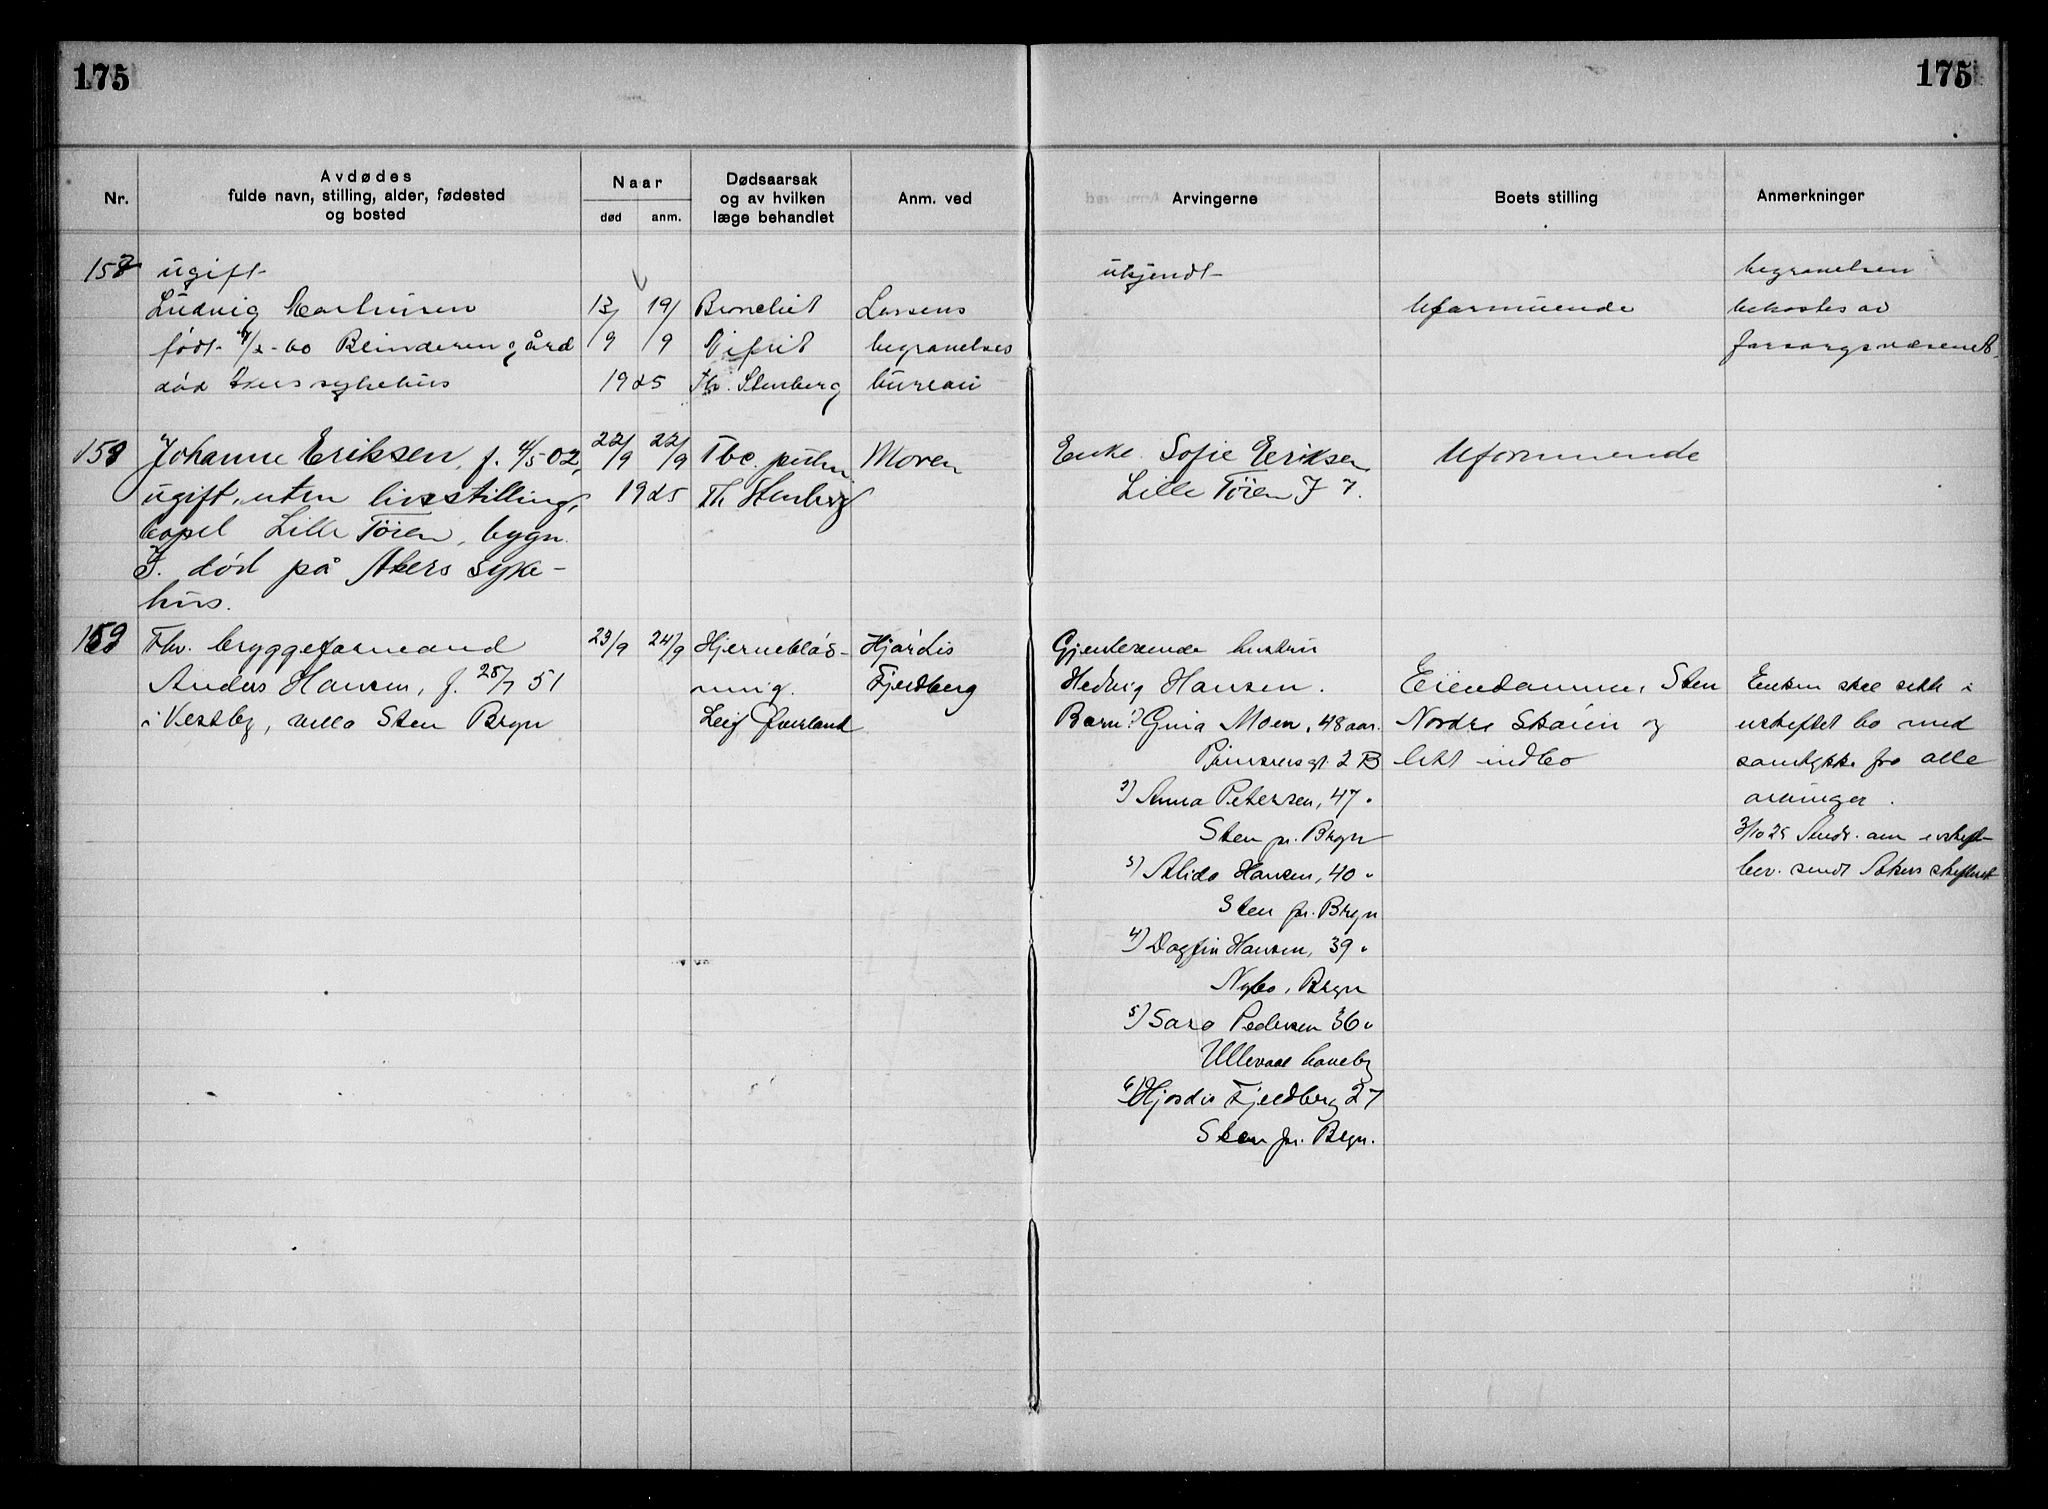 175
175
Nr.
Avdødes
fulde navn, stilling, alder, fødested
og bosted
Naar
død
anm.
Dødsaarsak
og av hvilken
læge behandlet
Anm. ved
Arvingerne
Boets stilling
Anmerkninger
157
ugift
Ludvig
født
gård
død Akers sykehus
13/9 19/9
1925
Bronchit
Th. Stenberg
begravelses
bureau
ukjendt
Uformuende
begravelsen
bekostes av
forsorgsvæsenet.
158
Johanne Eriksen, f. 4/5 02,
ugift, uten livsstilling,
bopel Lille Tøien, bygn.
J. død på Akers syke-
hus.
22/9 22/9
1925
Tbc. pulm
Th Stenberg
Moren
Enke Sofie Eriksen
Lille Tøien J 7.
Uformuende
159
Fhv. bryggeformand
Anders Hansen, f. 25/7 51
i Vestby, villa Sten Bryn
23/9 24/9
Hjerneblød-
ning.
Leif Øverland
Hjørdis
Fjeldberg
Gjenlevende hustru
Hedvig Hansen.
Barn: 1) Gina Moen, 48 aar.
2 B
2) Anna Petersen, 47 "
Sten pr. Bryn
3) Alida Hansen, 40 "
Sten pr. Bryn
4) Dagfin Hansen, 39 "
Nybo, Bryn
5) Sara Pedersen 36 "
Ullevaal haveby
6) Hjørdis Fjeldberg 27
Sten pr. Bryn.
Eiendommen, Sten
Nordre Skøien og
litt indbo
Enken skal sitte i
uskiftet bo med
samtykke fra alle
arvinger.
3/10 25 Andr. om uskift-
bev. sendt Akers skifteret